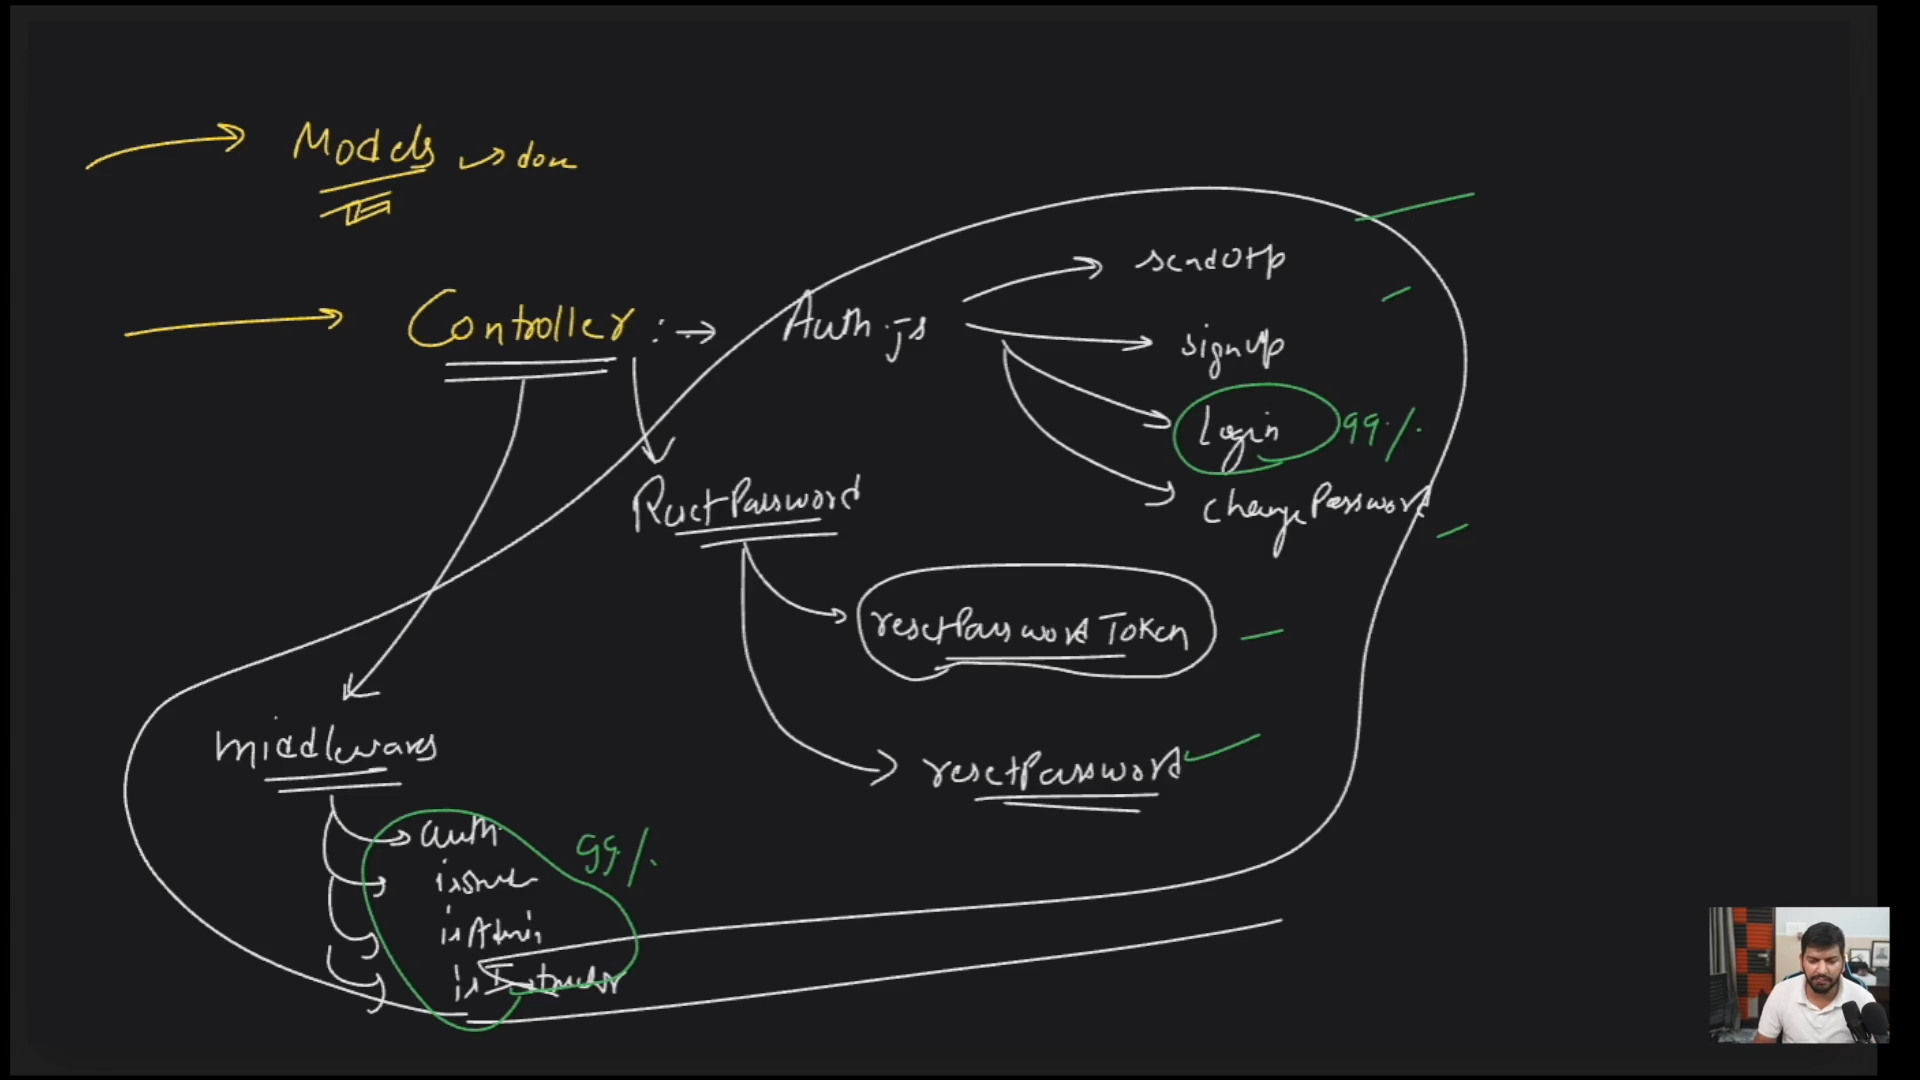 Models → done
Controller : → Auth.js
sendOtp
signup
Login 99%
changePassword
ResetPassword
resetPasswordToken
resetPassword
middlewares
auth 99%
isAdmin
isInstructor